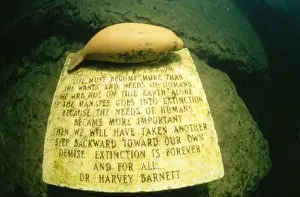 LIFE MUST BECOME MORE THAN
THE WANTS AND NEEDS OF HUMANS.
WE ARE NOT ON THIS EARTH ALONE.
IF THE MANATEE GOES INTO EXTINCTION
BECAUSE THE NEEDS OF HUMANS
BECAME MORE IMPORTANT
THEN WE WILL HAVE TAKEN ANOTHER
STEP BACKWARD TOWARD OUR OWN
DEMISE. EXTINCTION IS FOREVER
AND FOR ALL.
DR. HARVEY BARNETT